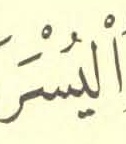 اَلْيُسْرَ